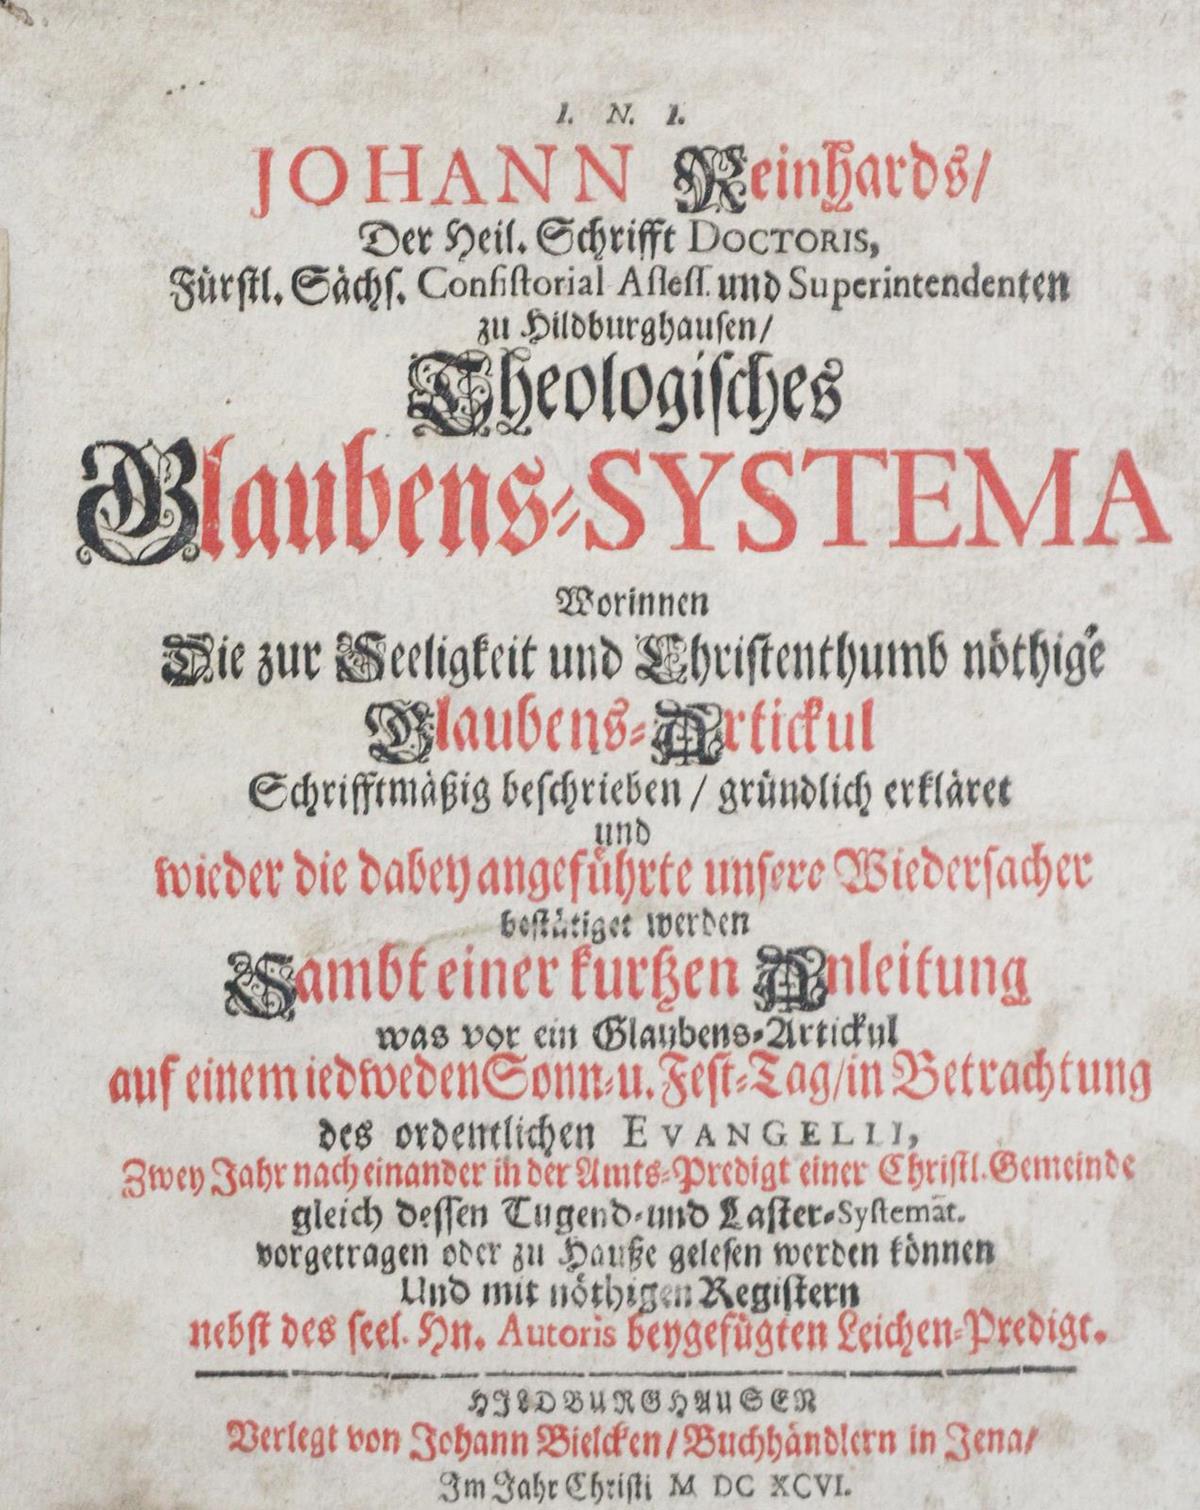 I. N. I.
JOHANN Reinhards/
Der Heil. Schrifft DOCTORIS,
Fürstl. Sächs. Consistorial Assess. und Superintendenten
zu Hildburghausen/
Theologisches
Glaubens-SYSTEMA
Worinnen
Die zur Seeligkeit und Christenthumb nöthige
Glaubens-Artickul
Schrifftmäßig beschrieben / gründlich erkläret
und
wieder die dabey angeführte unsere Wiedersacher
bestätiget werden
Sambt einer kurtzen Anleitung
was vor ein Glaubens-Artickul
auf einem iedweden Sonn-u. Fest-Tag/in Betrachtung
des ordentlichen EVANGELII,
Zwey Jahr nach einander in der Amts-Predigt einer Christl. Gemeinde
gleich dessen Tugend-und Laster-Systemāt.
vorgetragen oder zu Hauße gelesen werden können
Und mit nöthigen Registern
nebst des seel. Hn. Autoris beygefügten Leichen-Predigt.
HILDBURGHAUSEN
Verlegt von Johann Bielcken/Buchhändlern in Jena/
Im Jahr Christi M DC XCVI.